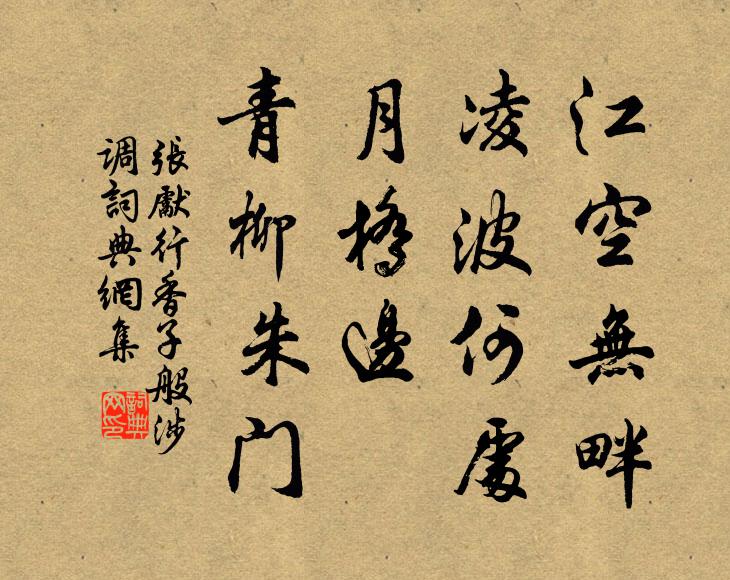 江空無畔
凌波何處
月橋邊
青柳朱门
張獻行香子般涉
调詞典網集
詞典
网印